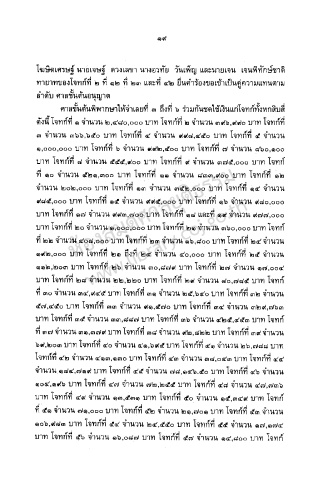 ๑๙
โฆษิตเศรษฐ์ นายเจษฎ์ ดวงเลขา นางอวทัย วันเพ็ญ และนายเจน เจนพิทักษ์ชาติ
ทายาทของโจทก์ที่ ๒ ที่ ๑๒ ที่ ๒๓ และที่ ๔๒ ยื่นคำร้องขอเข้าเป็นคู่ความแทนตาม
ลำดับ ศาลชั้นต้นอนุญาต
ศาลชั้นต้นพิพากษาให้จำเลยที่ ๓ ถึงที่ ๖ ร่วมกันชดใช้เงินแก่โจทก์ทั้งหกสิบสี่
ดังนี้ โจทก์ที่ ๑ จำนวน ๒,๔๘๐,๐๐๐ บาท โจทก์ที่ ๒ จำนวน บาท โจทก์ที่
๓ จำนวน ๓๖๖,๖๕๐ บาท โจทก์ที่ ๔ จำนวน ๙๙๘,๔๕๐ บาท โจทก์ที่ ๕ จำนวน
๑,๐๐๐,๐๐๐ บาท โจทก์ที่ ๖ จำนวน ๙๙๒,๕๐๐ บาท โจทก์ที่ ๗ จำนวน ๔๖๐,๑๐๐
บาท โจทก์ที่ ๘ จำนวน ๕๕๕,๙๐๐ บาท โจทก์ที่ ๙ จำนวน ๓๗๕,๐๐๐ บาท โจทก์
ที่ ๑๐ จำนวน ๕๒๑,๓๐๐ บาท โจทก์ที่ ๑๑ จำนวน ๘๓๓,๙๐๐ บาท โจทก์ที่ ๑๒
จำนวน ๒๐๒,๐๐๐ บาท โจทก์ที่ ๑๓ จำนวน ๓๕๒,๐๐๐ บาท โจทก์ที่ ๑๔ จำนวน
๙๘๕,๐๐๐ บาท โจทก์ที่ ๑๕ จำนวน ๙๙๕,๐๐๐ บาท โจทก์ที่ ๑๖ จำนวน ๙๘๐,๐๐๐
บาท โจทก์ที่ ๑๗ จำนวน ๙๙๓,๗๐๐ บาท โจทก์ที่ ๑๘ และที่ ๑๙ จำนวน ๙๗๗,๐๐๐
บาท โจทก์ที่ ๒๐ จำนวน ๑,๐๐๐,๐๐๐ บาท โจทก์ที่ ๒๑ จำนวน ๓๖๐,๐๐๐ บาท โจทก์
ที่ ๒๒ จำนวน ๔๐๘,๐๐๐ บาท โจทก์ที่ ๒๓ จำนวน ๑๖,๘๐๐ บาท โจทก์ที่ ๒๔ จำนวน
๑๙๒,๐๐๐ บาท โจทก์ที่ ๒๑ ถึงที่ ๒๔ จำนวน ๔๐,๐๐๐ บาท โจทก์ที่ ๒๕ จำนวน
๑๑๒,๒๐๓ บาท โจทก์ที่ ๒๖ จำนวน ๓๐,๘๗๙ บาท โจทก์ที่ ๒๗ จำนวน ๑๗,๐๐๔
บาท โจทก์ที่ ๒๘ จำนวน ๒๒,๒๒๐ บาท โจทก์ที่ ๒๙ จำนวน ๘๐,๗๔๕ บาท โจทก์
ที่ ๓๐ จำนวน ๓๔,๙๔๕ บาท โจทก์ที่ ๓๑ จำนวน ๒๕,๖๒๐ บาท โจทก์ที่ ๓๒ จำนวน
๕๗,๔๕๐ บาท โจทก์ที่ ๓๓ จำนวน ๑๑,๕๗๐ บาท โจทก์ที่ ๓๔ จำนวน ๔๒๙,๗๖๓
บาท โจทก์ที่ ๓๕ จำนวน ๑๐,๘๘๗ บาท โจทก์ที่ ๓๖ จำนวน ๔๒๕,๔๕๐ บาท โจทก์
ที่ ๓๗ จำนวน ๓๑,๓๗๙ บาท โจทก์ที่ ๓๘ จำนวน ๙๒,๘๒๒ บาท โจทก์ที่ ๓๙ จำนวน
๖๙,๒๐๓ บาท โจทก์ที่ ๔๐ จำนวน ๔๑,๖๙๕ บาท โจทก์ที่ ๔๑ จำนวน ๒๖,๗๘๘ บาท
โจทก์ที่ ๔๒ จำนวน ๔๑๓,๑๓๐ บาท โจทก์ที่ ๔๓ จำนวน ๓๘,๐๔๓ บาท โจทก์ที่ ๔๔
จำนวน ๑๘๔,๗๑๙ บาท โจทก์ที่ ๔๕ จำนวน ๗๘,๑๔๖.๕๐ บาท โจทก์ที่ ๔๖ จำนวน
๑๐๔,๑๙๖ บาท โจทก์ที่ ๔๗ จำนวน ๗๒,๒๕๕ บาท โจทก์ที่ ๔๘ จำนวน ๔๗,๗๗๖
บาท โจทก์ที่ ๔๙ จำนวน ๑๓,๕๓๑ บาท โจทก์ที่ ๕๐ จำนวน ๑๕,๓๔๙ บาท โจทก์
ที่ ๕๑ จำนวน ๗๑,๐๐๐ บาท โจทก์ที่ ๕๒ จำนวน ๒๑,๗๐๑ บาท โจทก์ที่ ๕๓ จำนวน
๑๐๖,๙๘๓ บาท โจทก์ที่ ๕๔ จำนวน ๒๔,๕๕๐ บาท โจทก์ที่ ๕๕ จำนวน ๑๗,๑๗๔
บาท โจทก์ที่ ๕๖ จำนวน ๑๖,๐๘๗ บาท โจทก์ที่ ๕๗ จำนวน ๑๔,๘๐๐ บาท โจทก์